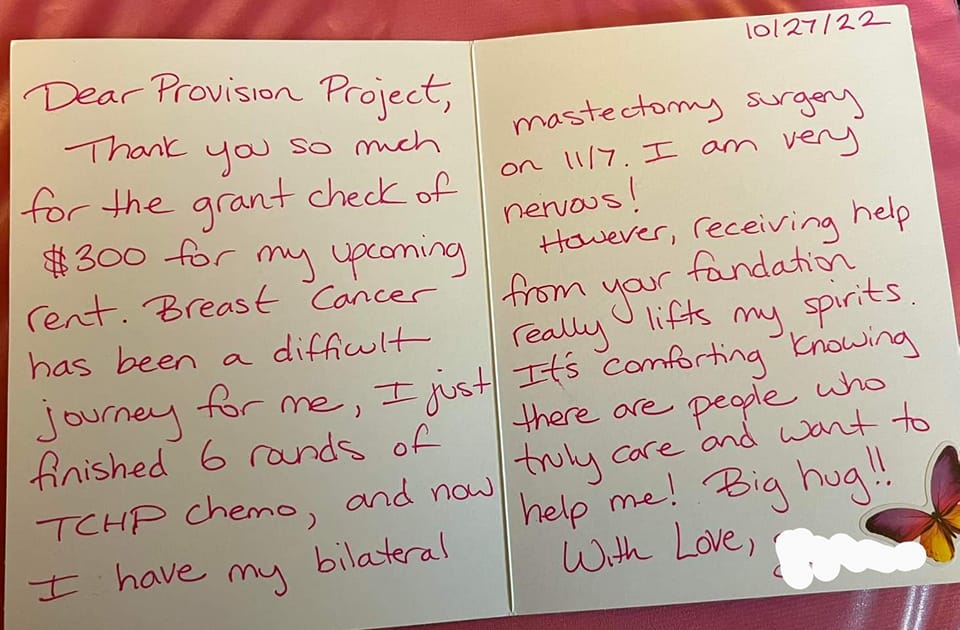 Dear Provision Project,
Thank you so much
for the grant check of
$300 for my upcoming
rent. Breast Cancer
has been a difficult
journey for me, I just
finished 6 rounds of
TCHP chemo, and now
I have my bilateral
10/27/22
mastectomy surgery
on 11/7. I am very
nervous!
However, receiving help
from your foundation
really lifts my spirits.
It's comforting knowing
there are people who
truly care and want to
help me! Big hug!!
With Love,